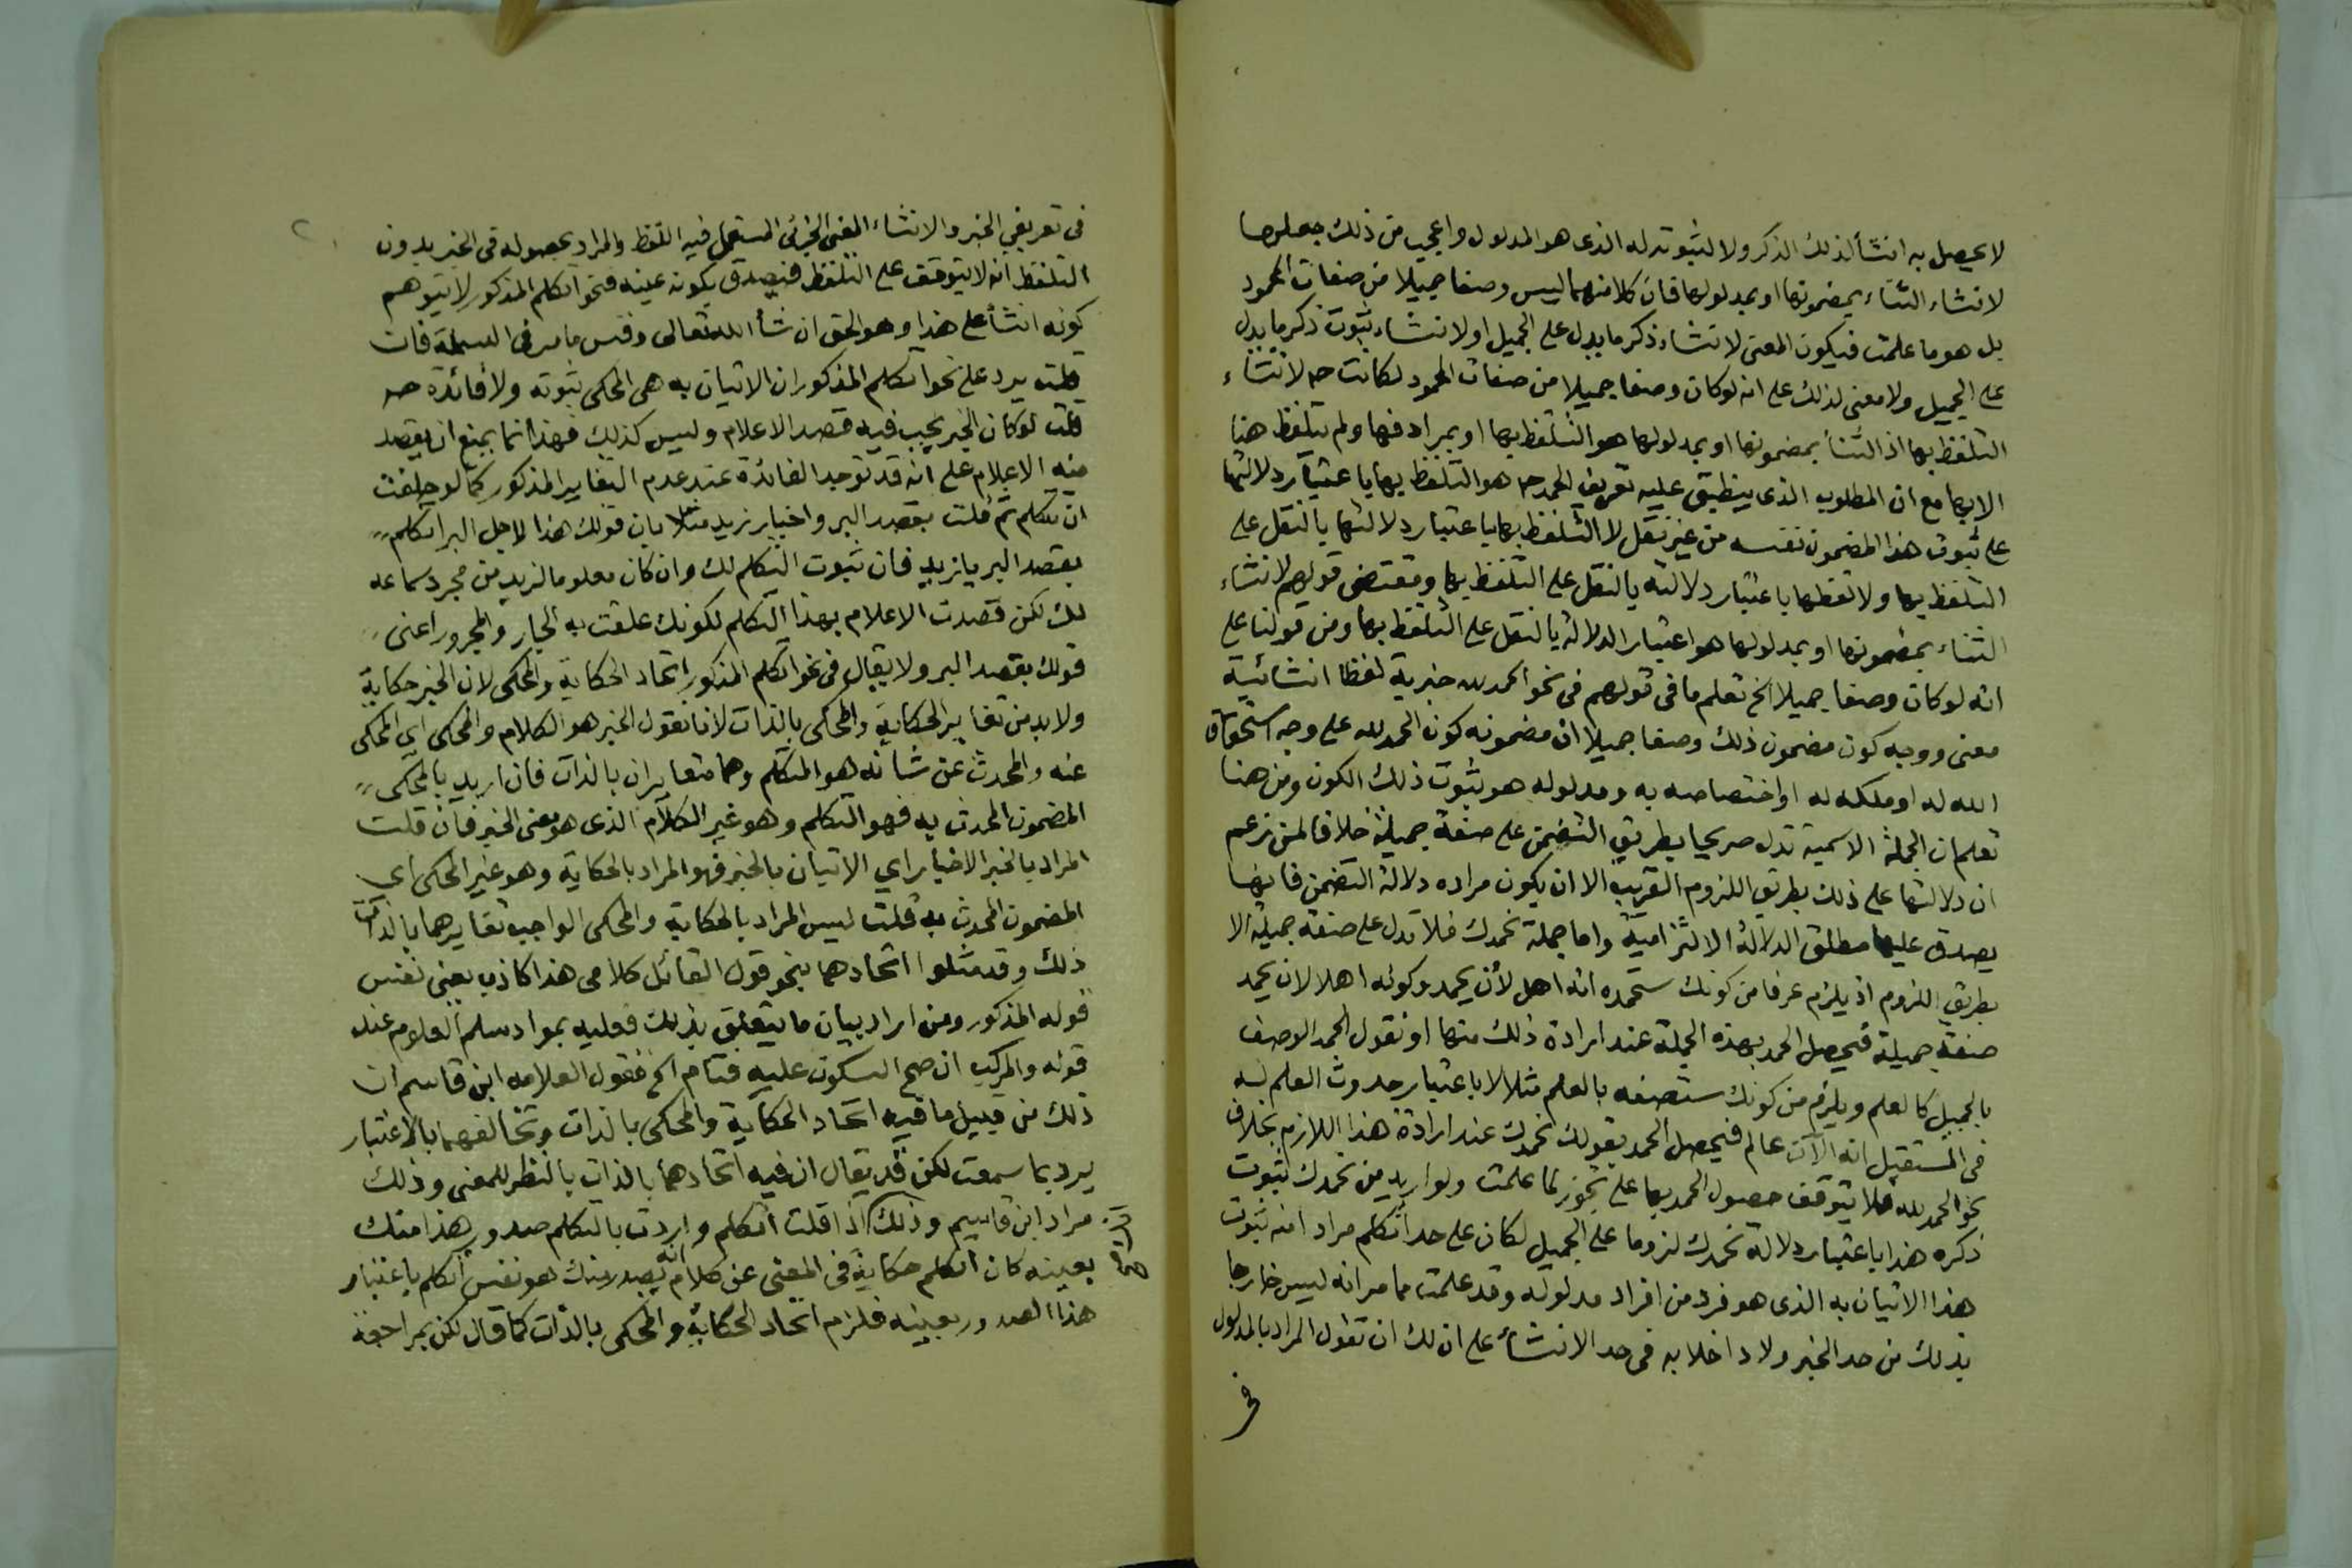 لا يحصل به انشأ لذلك الذكر ولا لثبوته له الذى هو المدلول واعجب من ذلك جعلها
لانشاء الثناء بمضمونها او بمدلولها فان كلا منهما ليس وصفا جميلا من صفات المحمود
بل هو ما علمت فيكون المعنى لانشاء ذكر ما يدل على الجميل او لانشاء ثبوت ذكر ما يدل
على الجميل ولا معنى لذلك على انه لو كان وصفا جميلا من صفات المحمود لكانت حـ لانشاء
التلفظ بها اذ الثنأ بمضمونها او بمدلولها هو التلفظ بها او بمرادفها ولم يتلفظ هنا
الا بها مع ان المطلوب الذى ينطبق عليه تعريف الحمد حـ هو التلفظ بها باعتبار دلالتها
على ثبوت هذا المضمون نفسه من غير نقل لا التلفظ بها باعتبار دلالتها بالنقل على
التلفظ بها ولا لفظها باعتبار دلالته بالنقل على التلفظ بها ومقتضى قولهم لانشاء
الثناء بمضمونها او بمدلولها هو اعتبار الدلالة بالنقل على التلفظ بها ومن قولنا على
انه لو كان وصفا جميلا الخ تعلم ما فى قولهم فى نحو الحمد لله خبرية لفظا انشائية
معنى ووجه كون مضمون ذلك وصفا جميلا ان مضمونه كون الحمد لله على وجه استحقاق
الله له او ملكه له او اختصاصه به ومدلوله هو ثبوت ذلك الكون ومن هنا
تعلم ان الجملة الاسمية تدل صريحا بطريق التضمن على صفة جميلة خلافا لمن زعم
ان دلالتها على ذلك بطريق اللزوم القريب الا ان يكون مراده دلالة التضمن فانها
يصدق عليها مطلق الدلالة الالتزامية واما جملة نحمدك فلا تدل على صفة جميلة الا
بطريق اللزوم اذ يلزم عرفا من كونك ستحمده انه اهل لأن يحمد وكونه اهلا لان يحمد
صفة جميلة فيحصل الحمد بهذه الجملة عند ارادة ذلك منها او نقول الحمد الوصف
بالجميل كالعلم ويلزم من كونك ستصفه بالعلم مثلا لا باعتبار حدوث العلم له
فى المستقبل انه الآن عالم فيحصل الحمد بقولك نحمدك عند ارادة هذا اللازم بخلاف
نحو الحمد لله فلا يتوقف حصول الحمد بها على تجوز لما علمت ولو اريد من نحمدك ثبوت
ذكره هذا باعتبار دلالة نحمدك لزوما على الجميل لكان على حد أتكلم مرادا منه ثبوت
هذا الاتيان به الذى هو فرد من افراد مدلوله وقد علمت مما مر انه ليس خارجا
بذلك من حد الخبر ولا داخلا به فى حد الانشأ على ان لك ان تقول المراد بالمدلول
فى
فى تعريفي الخبر والانشاء المعنى الجزئى المستعمل فيه اللفظ والمراد بحصوله فى الخبر بدون
التلفظ انه لا يتوقف على التلفظ فيصدق بكونه عينه فنحو اتكلم المذكور لا يتوهم
كونه انشأ على هذا وهو الحق ان شأ الله تعالى وقس ما مر فى البسملة فان
قلت يرد على نحو اتكلم المذكور ان الاتيان به هى المحكى ثبوته ولا فائدة حـ
قلت لو كان الخبر يجب فيه قصد الاعلام وليس كذلك فهذا انما يمنع ان يقصد
منه الاعلام على انه قد توجد الفائدة عند عدم التغاير المذكور كما لو حلفت
ان تتكلم ثم قلت بقصد البر واخبار زيد مثلا بان قولك هذا لاجل البر اتكلم
بقصد البر يا زيد فان ثبوت التكلم لك وان كان معلوما لزيد من مجرد سماعه
لك لكن قصدت الاعلام بهذا التكلم لكونك علقت به الجار والمجرور اعنى
قولك بقصد البر ولا يقال فى نحو اتكلم المذكور اتحاد الحكاية والمحكى لان الخبر حكاية
ولا بد من تغاير الحكاية والمحكى بالذات لانا نقول الخبر هو الكلام والمحكى اي المحكى
عنه والمحدث عن شانه هو المتكلم وهما متغايران بالذات فان اريد بالمحكى
المضمون المحدث به فهو التكلم وهو غير الكلام الذى هو معنى الخبر فان قلت
المراد بالخبر الاخبار اي الاتيان بالخبر فهو المراد بالحكاية وهو غير المحكى اي
المضمون المحدث به قلت ليس المراد بالحكاية والمحكى الواجب تغايرهما بالذات
ذلك وقد مثلوا اتحادهما بنحو قول القائل كلامى هذا كاذب يعنى نفس
قوله المذكور ومن اراد بيان ما يتعلق بذلك فعليه بمواد سلم العلوم عند
قوله والمركب ان صح السكوت عليه فتام الخ فقول العلامه ابن قاسم ان
ذلك من قبيل ما فيه اتحاد الحكاية والمحكى بالذات وتخالفهما بالاعتبار
يرد بما سمعت لكن قد يقال ان فيه اتحادهما بالذات بالنظر للمعنى وذلك
مراد ابن قاسم وذلك اذا قلت اتكلم واردت بالتكلم صدور هذا منك
بعينه كان اتكلم حكاية فى المعنى عن كلام انه يصدر منك هو نفس اتكلم باعتبار
هذا الصدور بعينه فلزم اتحاد الحكاية والمحكى بالذات كما قال لكن بمراجعة